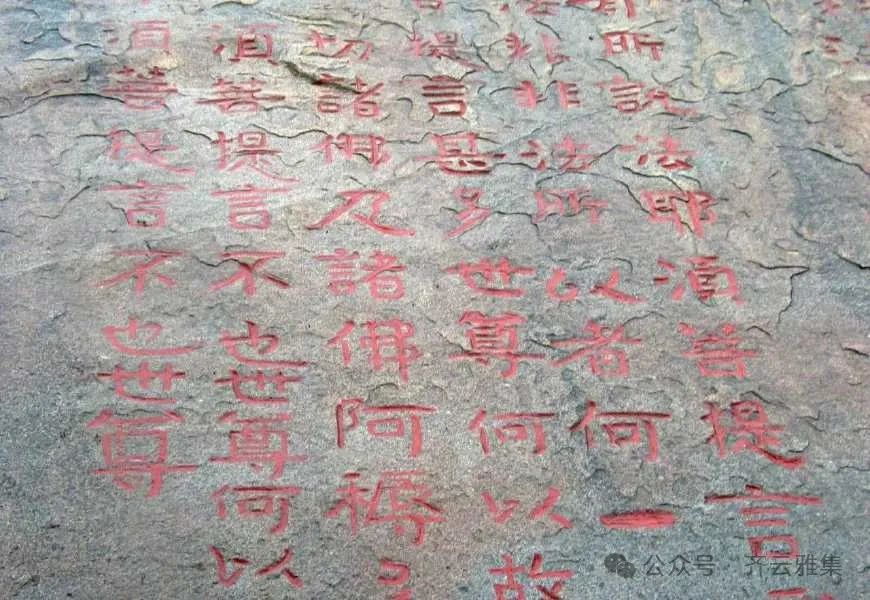 所說法耶須菩提言
法非非法所以者何一
提言甚多世尊何以故
切諸佛及諸佛阿耨
須菩提言不也世尊何以
須菩提言不也世尊
公众号 · 齐云雅集